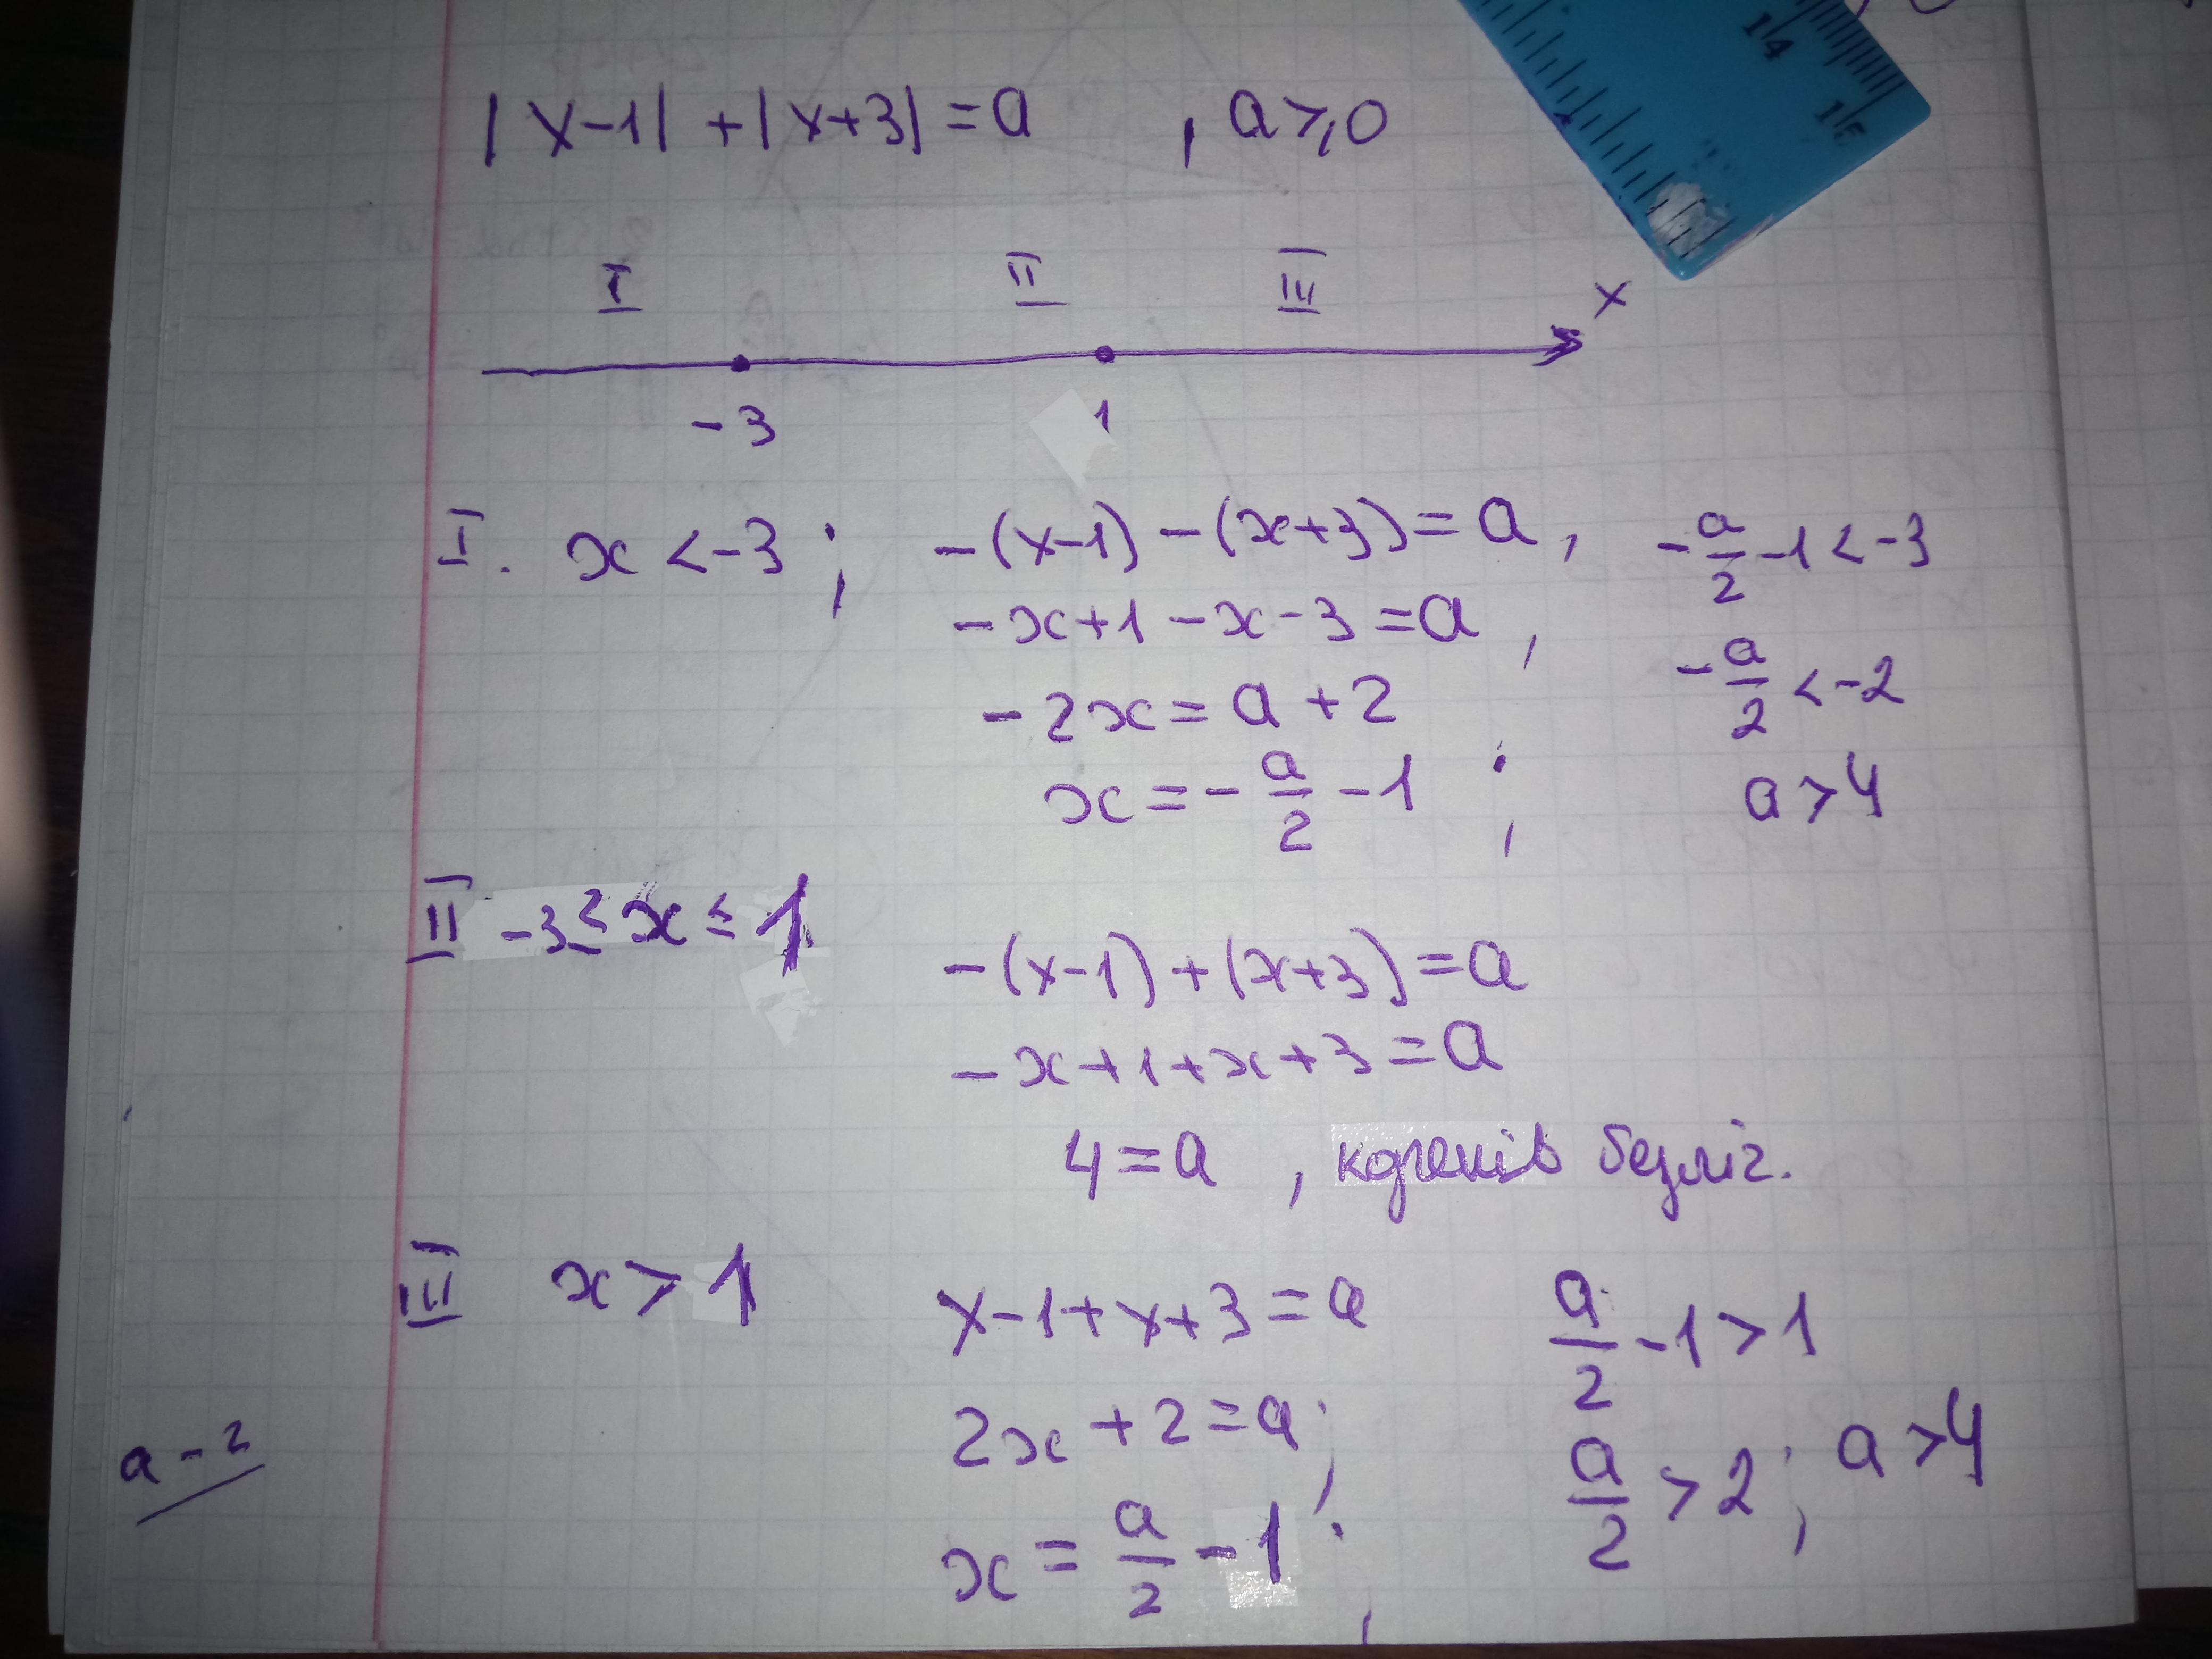 |x-1| + |x+3| = a , a ⩾ 0
14
15
I II III
x
-3 1
I. x < -3 ; -(x-1) - (x+3) = a , -a/2 - 1 < -3
-x+1-x-3 = a , -a/2 < -2
-2x = a + 2
x = -a/2 - 1 ; a > 4
II -3 ≤ x ≤ 1
-(x-1) + (x+3) = a
-x+1+x+3 = a
4 = a , коренів безліч.
III x > 1 x-1+x+3 = a a/2 - 1 > 1
2x + 2 = a ; a/2 > 2 ; a > 4
a - 2
x = a/2 - 1 ;